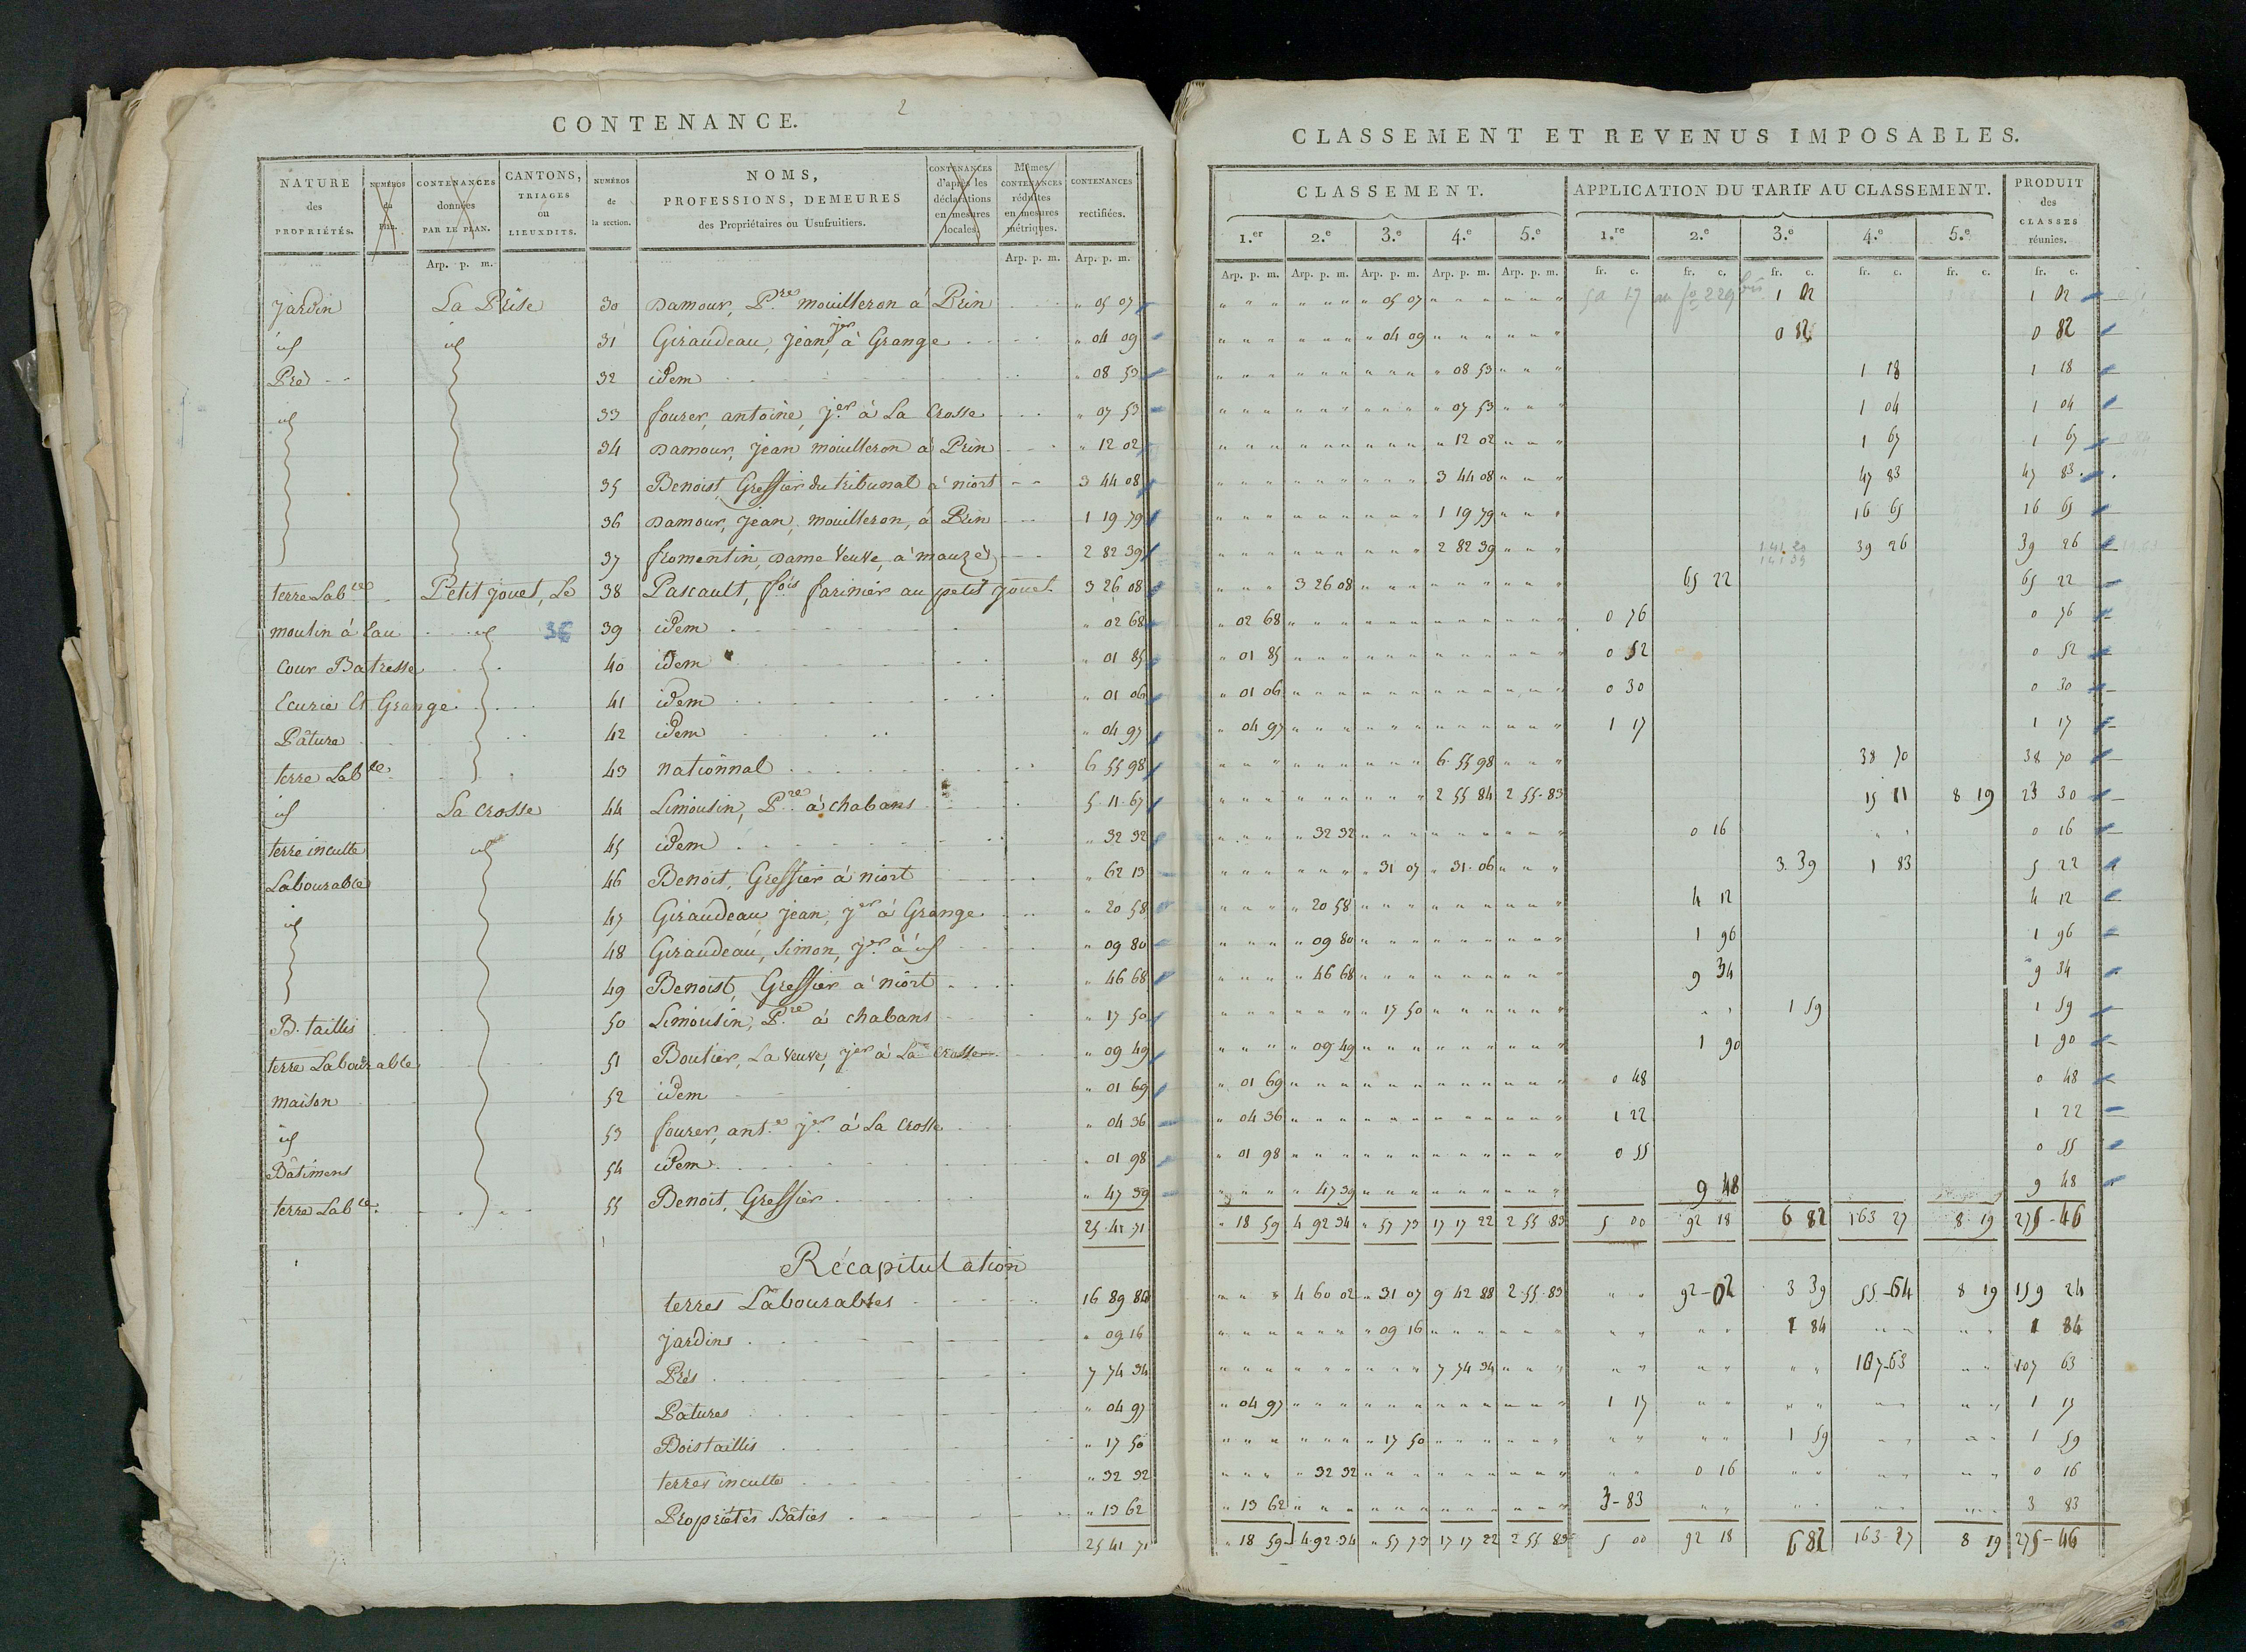 2
CONTENANCE.
NATURE des PROPRIÉTÉS. NUMÉROS du PLAN. CONTENANCES données PAR LE PLAN. CANTONS, TRIAGES ou LIEUXDITS. NUMÉROS de la section. NOMS, PROFESSIONS, DEMEURES des Propriétaires ou Usufruitiers. CONTENANCES d'après les déclarations en mesures locales. Mêmes CONTENANCES réduites en mesures métriques. CONTENANCES rectifiées.
Arp. p. m. Arp. p. m. Arp. p. m.
Jardin La Prise 30 Damour, Pre mouilleron à Prin " 05 07
id id 31 Giraudeau, Jean, jer à Grange " 04 09
Pré 32 idem " 08 53
id 33 fourer, antoine, jer à La Crosse " 07 53
34 Damour, Jean mouilleron à Prin " 12 02
35 Benoist, Greffier du tribunal à niort 3 44 08
36 Damour, Jean, mouilleron, à Prin 1 19 79
37 fromentin, Dame Veuve, à mauzé 2 82 39
terre Lable Petit Jouet, Le 38 Pascault, fois farinier au petit Jouet 3 26 08
moulin à Eau id 36 39 idem " 02 68
Cour Batresse 40 idem " 01 85
Ecurie Et Grange 41 idem " 01 06
Pâture 42 idem " 04 97
terre Lable 43 nationnal 6 55 98
id La Crosse 44 Limousin, Pre à chabans 5 11 67
terre inculte id 45 idem " 32 32
Labourable 46 Benoit, Greffier à niort " 62 13
id 47 Giraudeau, Jean, jer à Grange " 20 58
48 Giraudeau, Simon, jer à id " 09 80
49 Benoist, Greffier à niort " 46 68
B. taillis 50 Limousin, Pre à chabans " 17 50
terre Labourable 51 Boutier, La Veuve, jer à La Crosse " 09 49
maison 52 idem " 01 69
id 53 fourer, ant.e jer à La Crosse " 04 36
Bâtimens 54 idem " 01 98
terre Lable 55 Benoit, Greffier " 47 39
25 41 71
Récapitulation
terres Labourables 16 89 80
Jardins " 09 16
Prés 7 74 34
Pâtures " 04 97
Bois taillis " 17 50
terres inculte " 32 32
Propriétés Bâties " 13 62
25 41 71
CLASSEMENT ET REVENUS IMPOSABLES.
CLASSEMENT. APPLICATION DU TARIF AU CLASSEMENT. PRODUIT des CLASSES réunies.
1.er 2.e 3.e 4.e 5.e 1.re 2.e 3.e 4.e 5.e
Arp. p. m. Arp. p. m. Arp. p. m. Arp. p. m. Arp. p. m. fr. c. fr. c. fr. c. fr. c. fr. c. fr. c.
" 05 07 50 17 au fo 229 bis 1 02 1 02
" 04 09 0 82 0 82
" 08 53 1 18 1 18
" 07 53 1 04 1 04
" 12 02 1 67 1 67
3 44 08 47 83 47 83
1 19 79 16 65 16 65
2 82 39 39 26 39 26
3 26 08 65 22 65 22
" 02 68 0 76 0 76
" 01 85 0 52 0 52
" 01 06 0 30 0 30
" 04 97 1 17 1 17
6 55 98 38 70 38 70
2 55 84 2 55 83 15 11 8 19 23 30
" 32 32 0 16 0 16
" 31 07 " 31 06 3 39 1 83 5 22
" 20 58 4 12 4 12
" 09 80 1 96 1 96
" 46 68 9 34 9 34
" 17 50 1 59 1 59
" 09 49 1 90 1 90
" 01 69 0 48 0 48
" 04 36 1 22 1 22
" 01 98 0 55 0 55
" 47 39 9 48 9 48
" 18 59 4 92 34 " 57 73 17 17 22 2 55 83 5 00 92 18 6 82 163 27 8 19 275-46
4 60 02 " 31 07 9 42 88 2 55 83 92-02 3 39 55-64 8 19 159 24
" 09 16 1 84 1 84
7 74 34 107-63 107 63
" 04 97 1 17 1 17
" 17 50 1 59 1 59
" 32 32 0 16 0 16
" 13 62 3-83 3 83
" 18 59 4 92 34 " 57 73 17 17 22 2 55 83 5 00 92 18 6 82 163-27 8 19 275-46